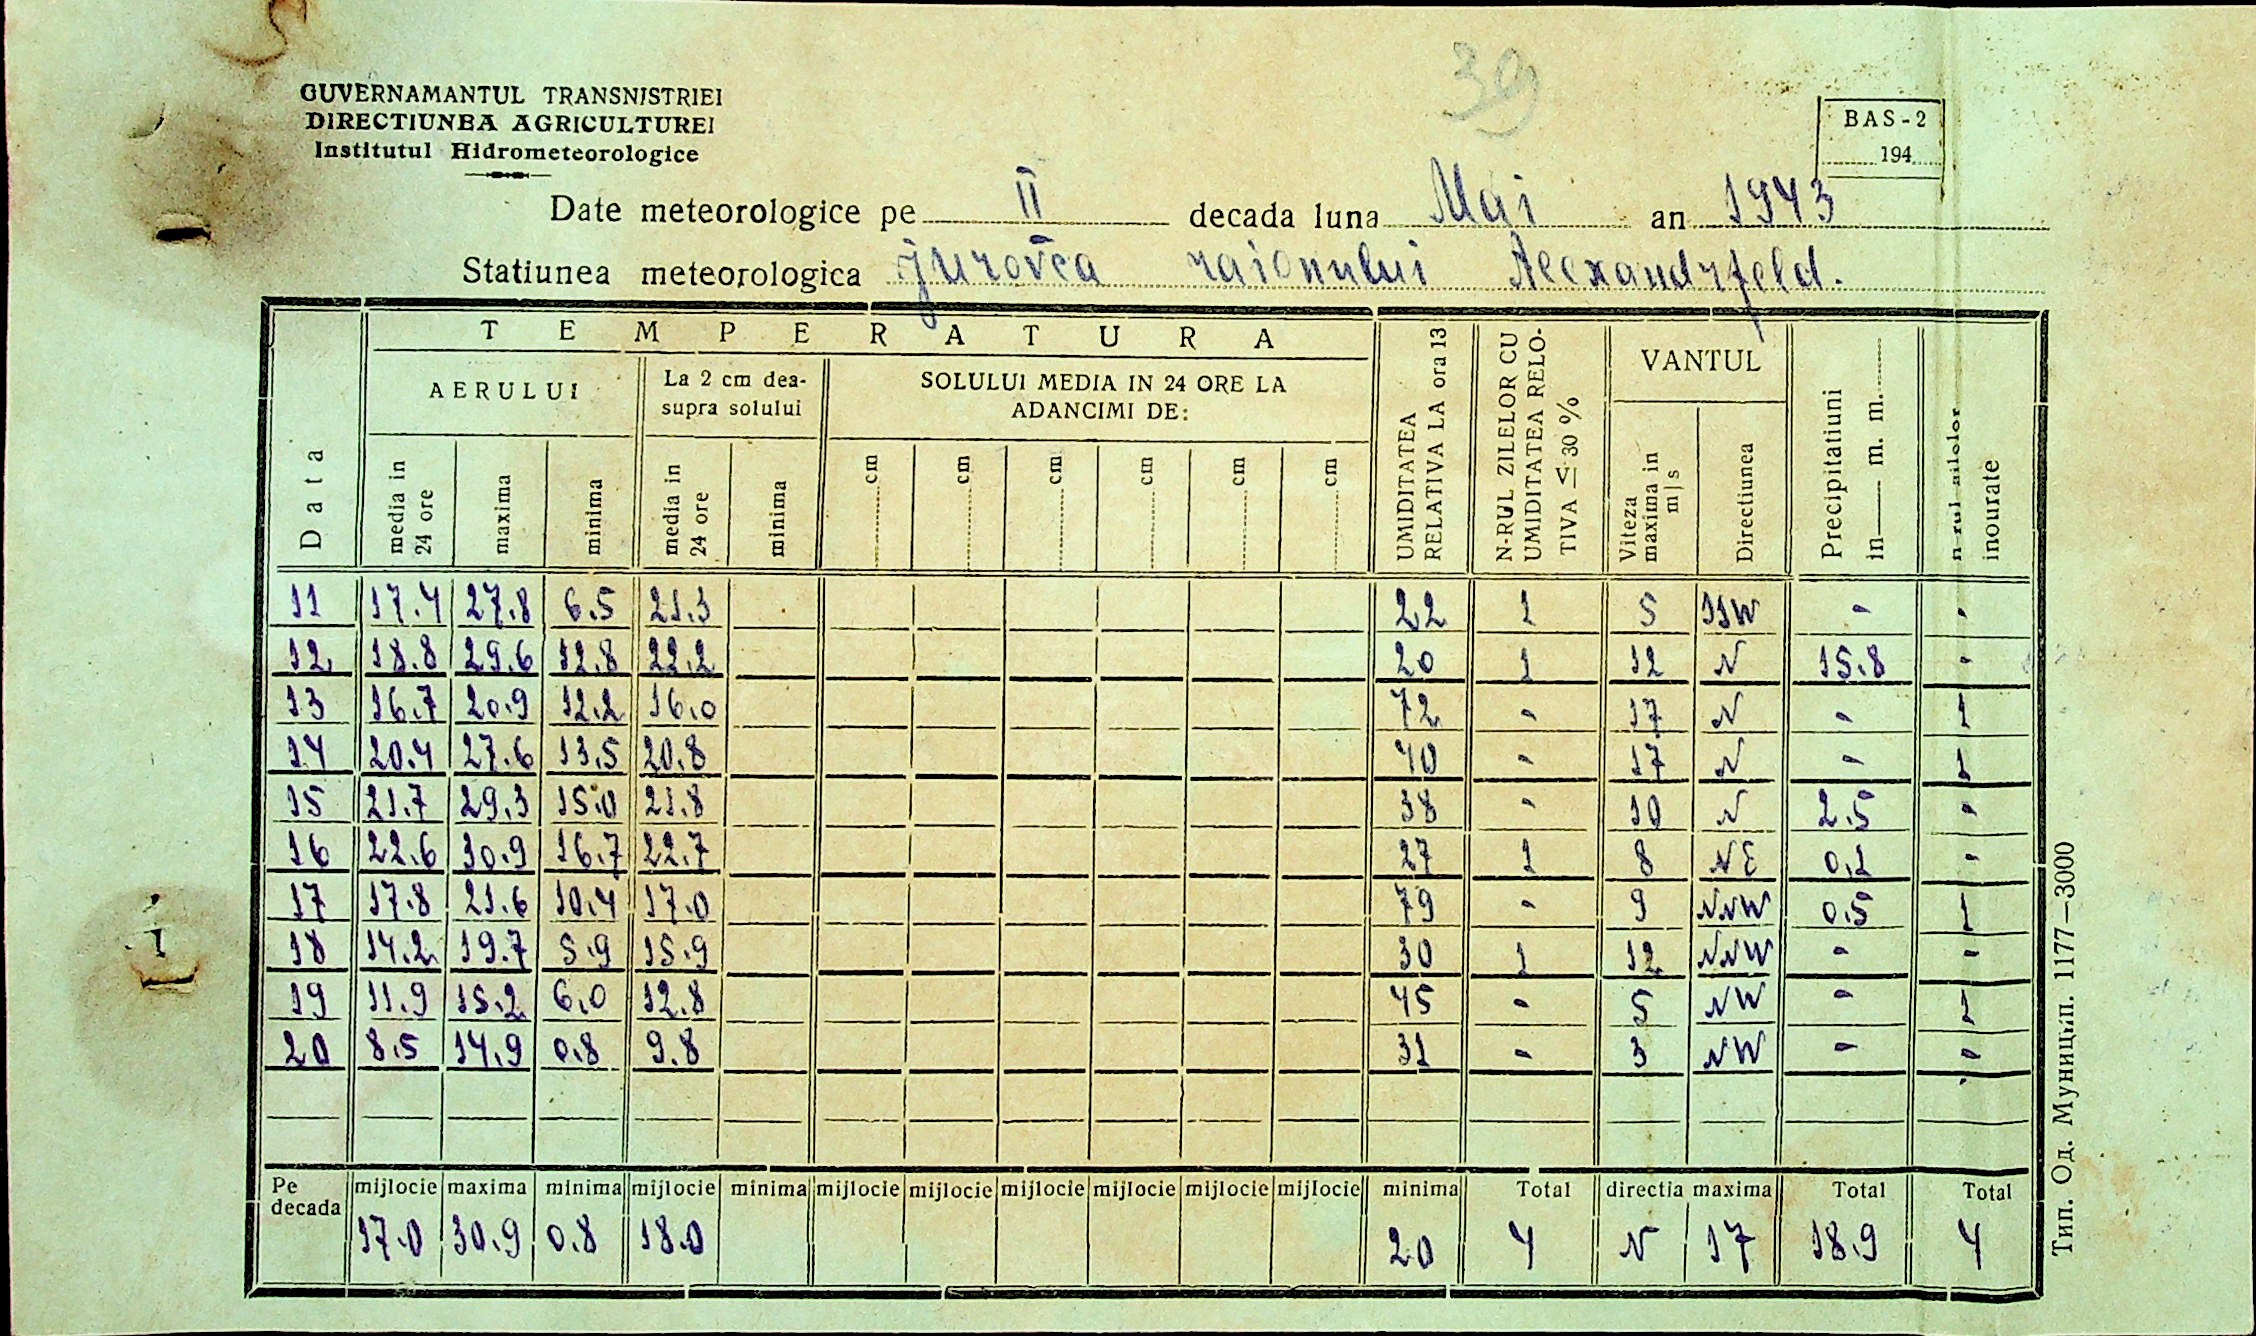 39
GUVERNAMANTUL TRANSNISTRIEI
DIRECTIUNEA AGRICULTUREI
Institutul Hidrometeorologice
BAS-2
194
Date meteorologice pe II decada luna Mai an 1943
Statiunea meteorologica jurovca raionului Alexandrfeld.
Data
TEMPERATURA
AERULUI
La 2 cm deasupra solului
SOLULUI MEDIA IN 24 ORE LA
ADANCIMI DE:
UMIDITATEA RELATIVA LA ora 13
N-RUL ZILELOR CU UMIDITATEA RELO-TIVA ≤ 30 %
VANTUL
Precipitatiuni in m. m.
n-rul zilelor inourate
media in 24 ore maxima minima media in 24 ore minima cm cm cm cm cm cm Viteza maxima in m|s Directiunea
11 17.4 27.8 6.5 21.3 22 1 5 SSW - -
12 18.8 29.6 12.8 22.2 20 1 12 N 15.8 -
13 16.7 20.9 12.2 16.0 72 - 17 N - 1
14 20.4 27.6 13.5 20.8 40 - 17 N - 1
15 21.7 29.3 15.0 21.8 38 - 10 N 2.5 -
16 22.6 30.9 16.7 22.7 27 1 8 NE 0.1 -
17 17.8 21.6 10.4 17.0 79 - 9 NNW 0.5 1
18 14.2 19.7 5.9 15.9 30 1 12 NNW - -
19 11.9 15.2 6.0 12.8 45 - 5 NW - 1
20 8.5 14.9 0.8 9.8 31 - 3 NW - -
Pe decada mijlocie maxima minima mijlocie minima mijlocie mijlocie mijlocie mijlocie mijlocie mijlocie minima Total directia maxima Total Total
17.0 30.9 0.8 18.0 20 4 N 17 18.9 4
Тип. Од. Муницип. 1177—3000